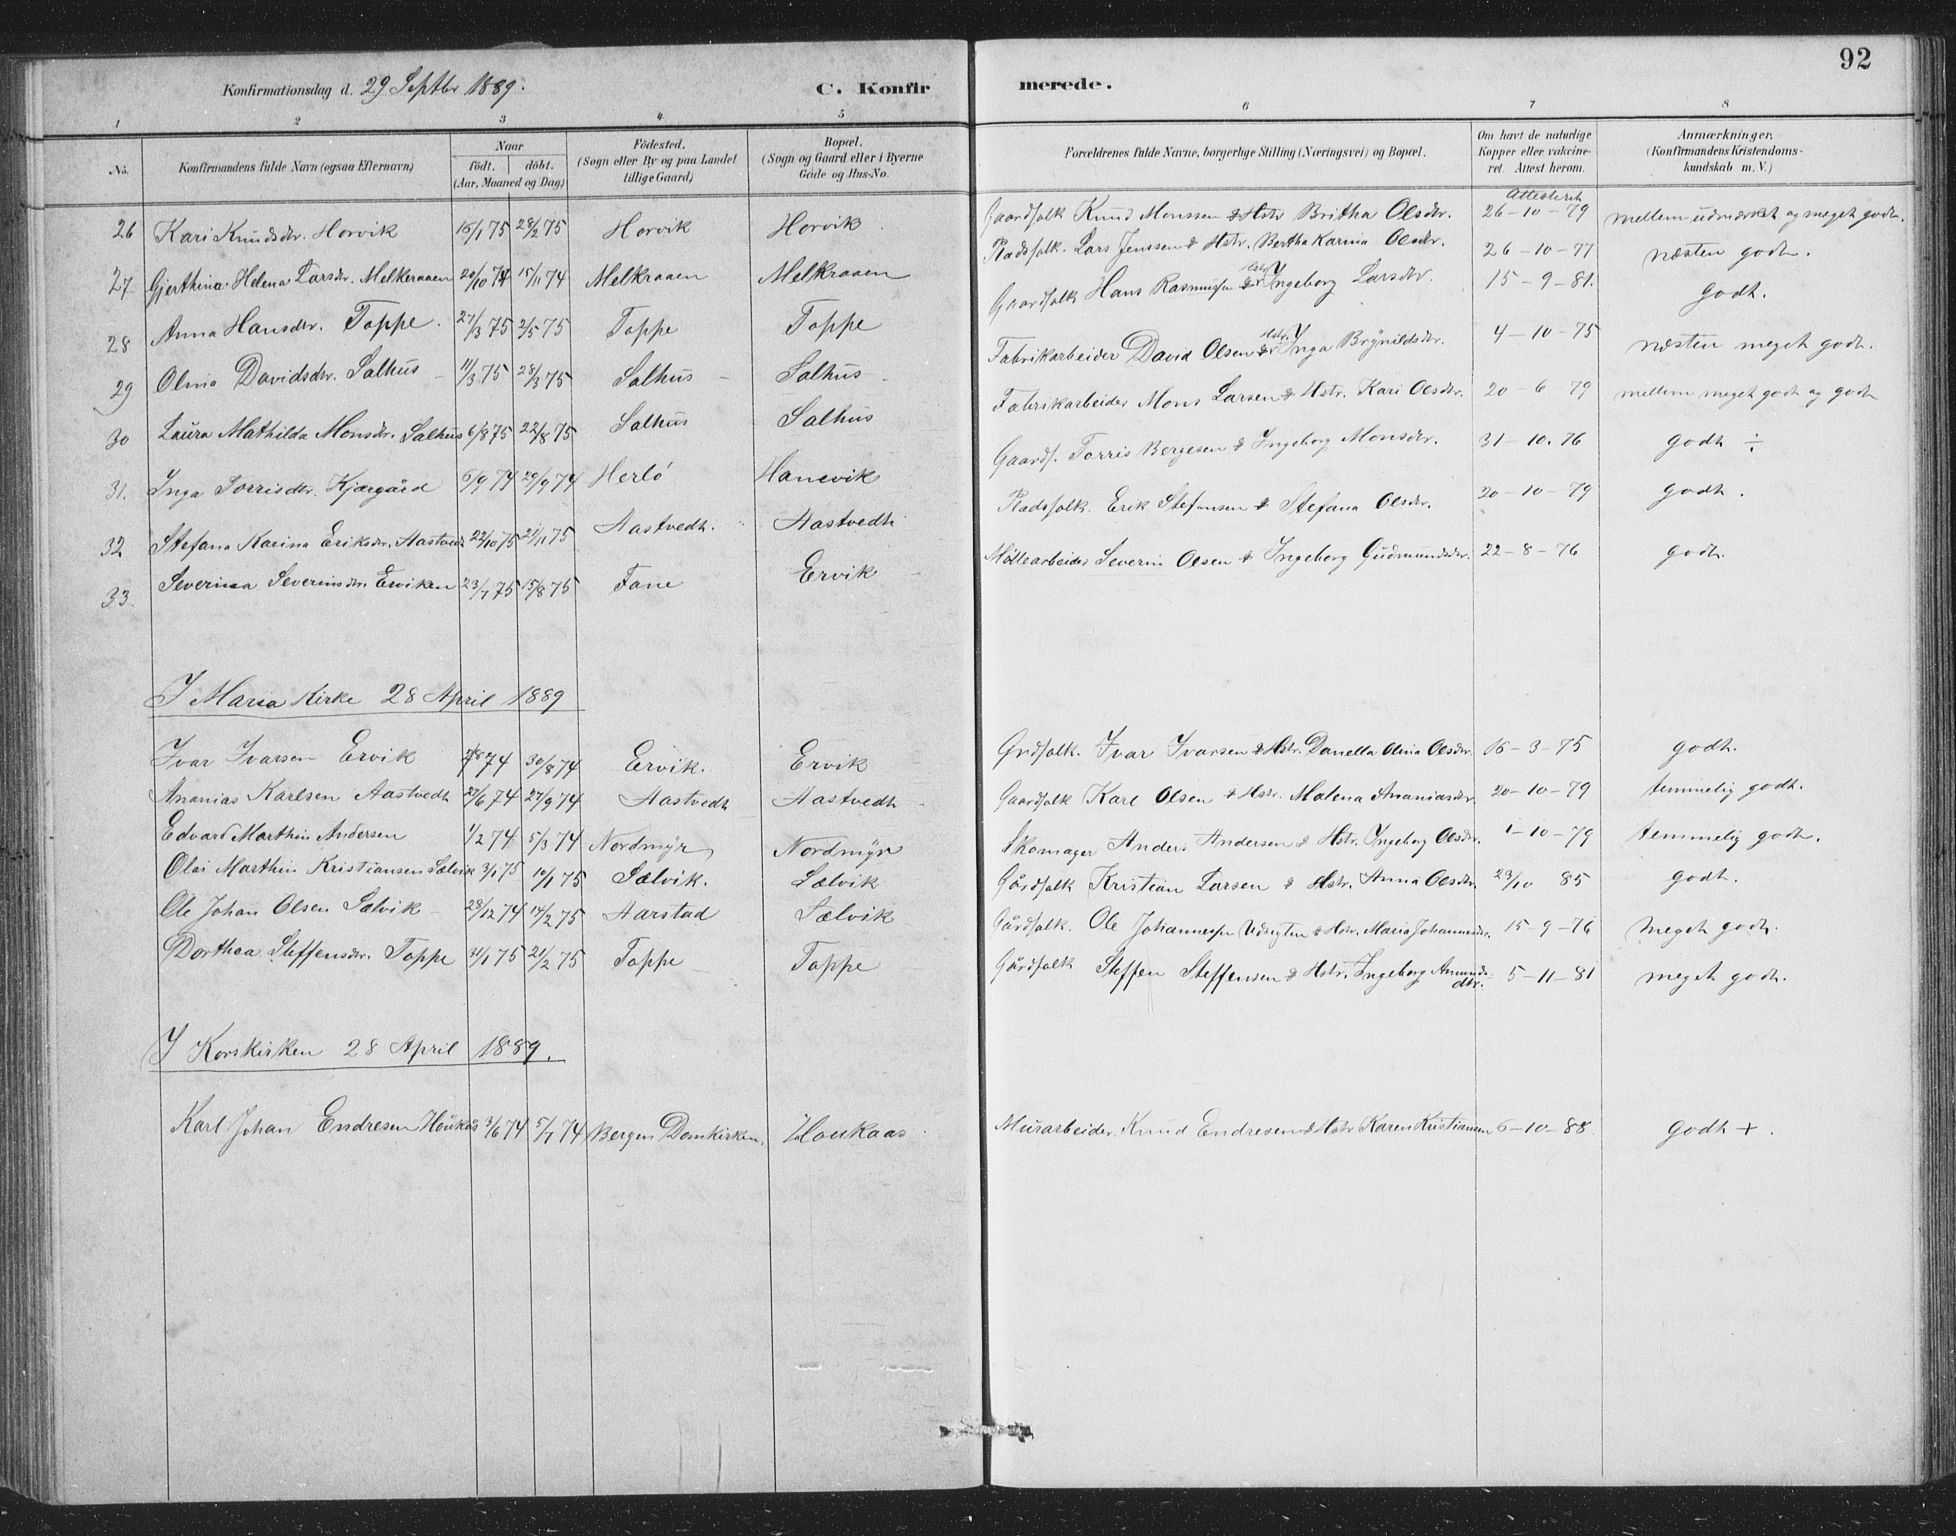 92
Konfirmationsdag d. 29 Septbr 1889. C. Konfirmerede.
1 2 3 4 5 6 7 8
No. Konfirmandens fulde Navn (ogsaa Efternavn) Naar födt. döbt. (Aar, Maaned og Dag) Födested. (Sogn eller By og paa Landet tillige Gaard) Bopæl. (Sogn og Gaard eller i Byerne Gade og Hus-No. Forældrenes fulde Navne, borgerlige Stilling (Næringsvei) og Bopæl. Om havt de naturlige Kopper eller vakcineret. Attest herom. Anmærkninger. (Konfirmandens Kristendomskundskab m. V.)
Attesterik
26 Kari Knudsdtr. Horvik 15/1 75 28/2 75 Horvik Horvik Gaardfolk Knud Monssen & Hstr Britha Olsdtr. 26-10-79 mellem udmærket og meget godt.
27 Gjerthina Helena Larsdtr. Melkeraaen 20/10 74 15/11 74 Melkraaen Melkraaen Pladsfolk. Lars Jenssen & Hstr. Bertha Karina Olsdtr. 26-10-77 næsten godt.
28 Anna Hansdtr. Toppe. 27/3 75 2/5 75 Toppe Toppe Gaardfolk Hans Rasmussen & Hstr Ingeborg Larsdtr. 15-9-81. godt.
29 Olina Davidsdtr. Salhus 11/3 75 28/3 75 Salhus Salhus Fabrikarbeider David Olsen & Hstr. Inga Brynildsdtr. 4-10-75 næsten meget godt.
30 Laura Mathilda Monsdtr. Salhus 6/8 75 22/8 75 Salhus Salhus Fabrikarbeider Mons Larsen & Hstr. Kari Olsdtr. 20-6 79 mellem meget godt og godt
31. Inga Torrisdtr. Kjærgård 6/9 74 20/9 74 Herlö Hanevik Gaardf. Torris Bergesen & Ingeborg Monsdtr. 31-10.76 godt ÷
32 Stefana Karina Eriksdtr. Aastvedt 22/10 75 21/11 75 Aastvedt. Aastvedt Pladsfolk. Erik Stefansen & Stefana Olsdtr. 20-10-79 godt.
33. Severina Severinsdtr. Erviken 23/7 75 15/8 75 Fane Ervik Möllearbeider Severin Olsen & Ingeborg Gudmundsdtr. 22-8-76 godt.
I Maria Kirke 28 April 1889
Ivar Ivarsen Ervik 7/8 74 30/8 74 Ervik. Ervik Grdfolk. Ivar Ivarsen & Hstr. Daniella Olina Olsdtr. 16-3-75 godt.
Ananias Karlsen Aastvedt 27/6 74 27/9 74 Aastvedt Aastvedt Gaardfolk Karl Olsen & Hstr. Malena Ananiasdtr. 20-10-79 temmelig godt.
Edvard Marthin Andersen 1/2 74 5/3 74 Nordmyr Nordmyr Skomager Anders Andersen & Hstr. Ingeborg Olsdtr. 1-10-79 temmelig godt.
Olai Marthin Kristiansen Sælvik 3/1 75 10/1 75 Sælvik. Sælvik Gårdfolk Kristian Larsen & Hstr. Anna Olsdtr. 23/10 85 godt.
Ole Johan Olsen Sælvik 28/12 74 14/2 75 Aarstad Sælvik Gårdfolk. Ole Johannesse Udsigten & Hstr. Maria Johannesdtr. 15-9-76 meget godt.
Dorthea Steffensdtr. Toppe 31/1 75 21/2 75 Toppe Toppe Gårdfolk Steffen Steffensen & Hstr. Ingeborg Amundsdtr. 5-11-81 meget godt.
I Korskirken 28 April 1889.
Karl Johan Endresen Höukås 3/6 74 5/7 74 Bergen Domkirken. Houkaas Murarbeider Knud Endresen & Hstr Karen Kristiansen 6-10-88. godt +.